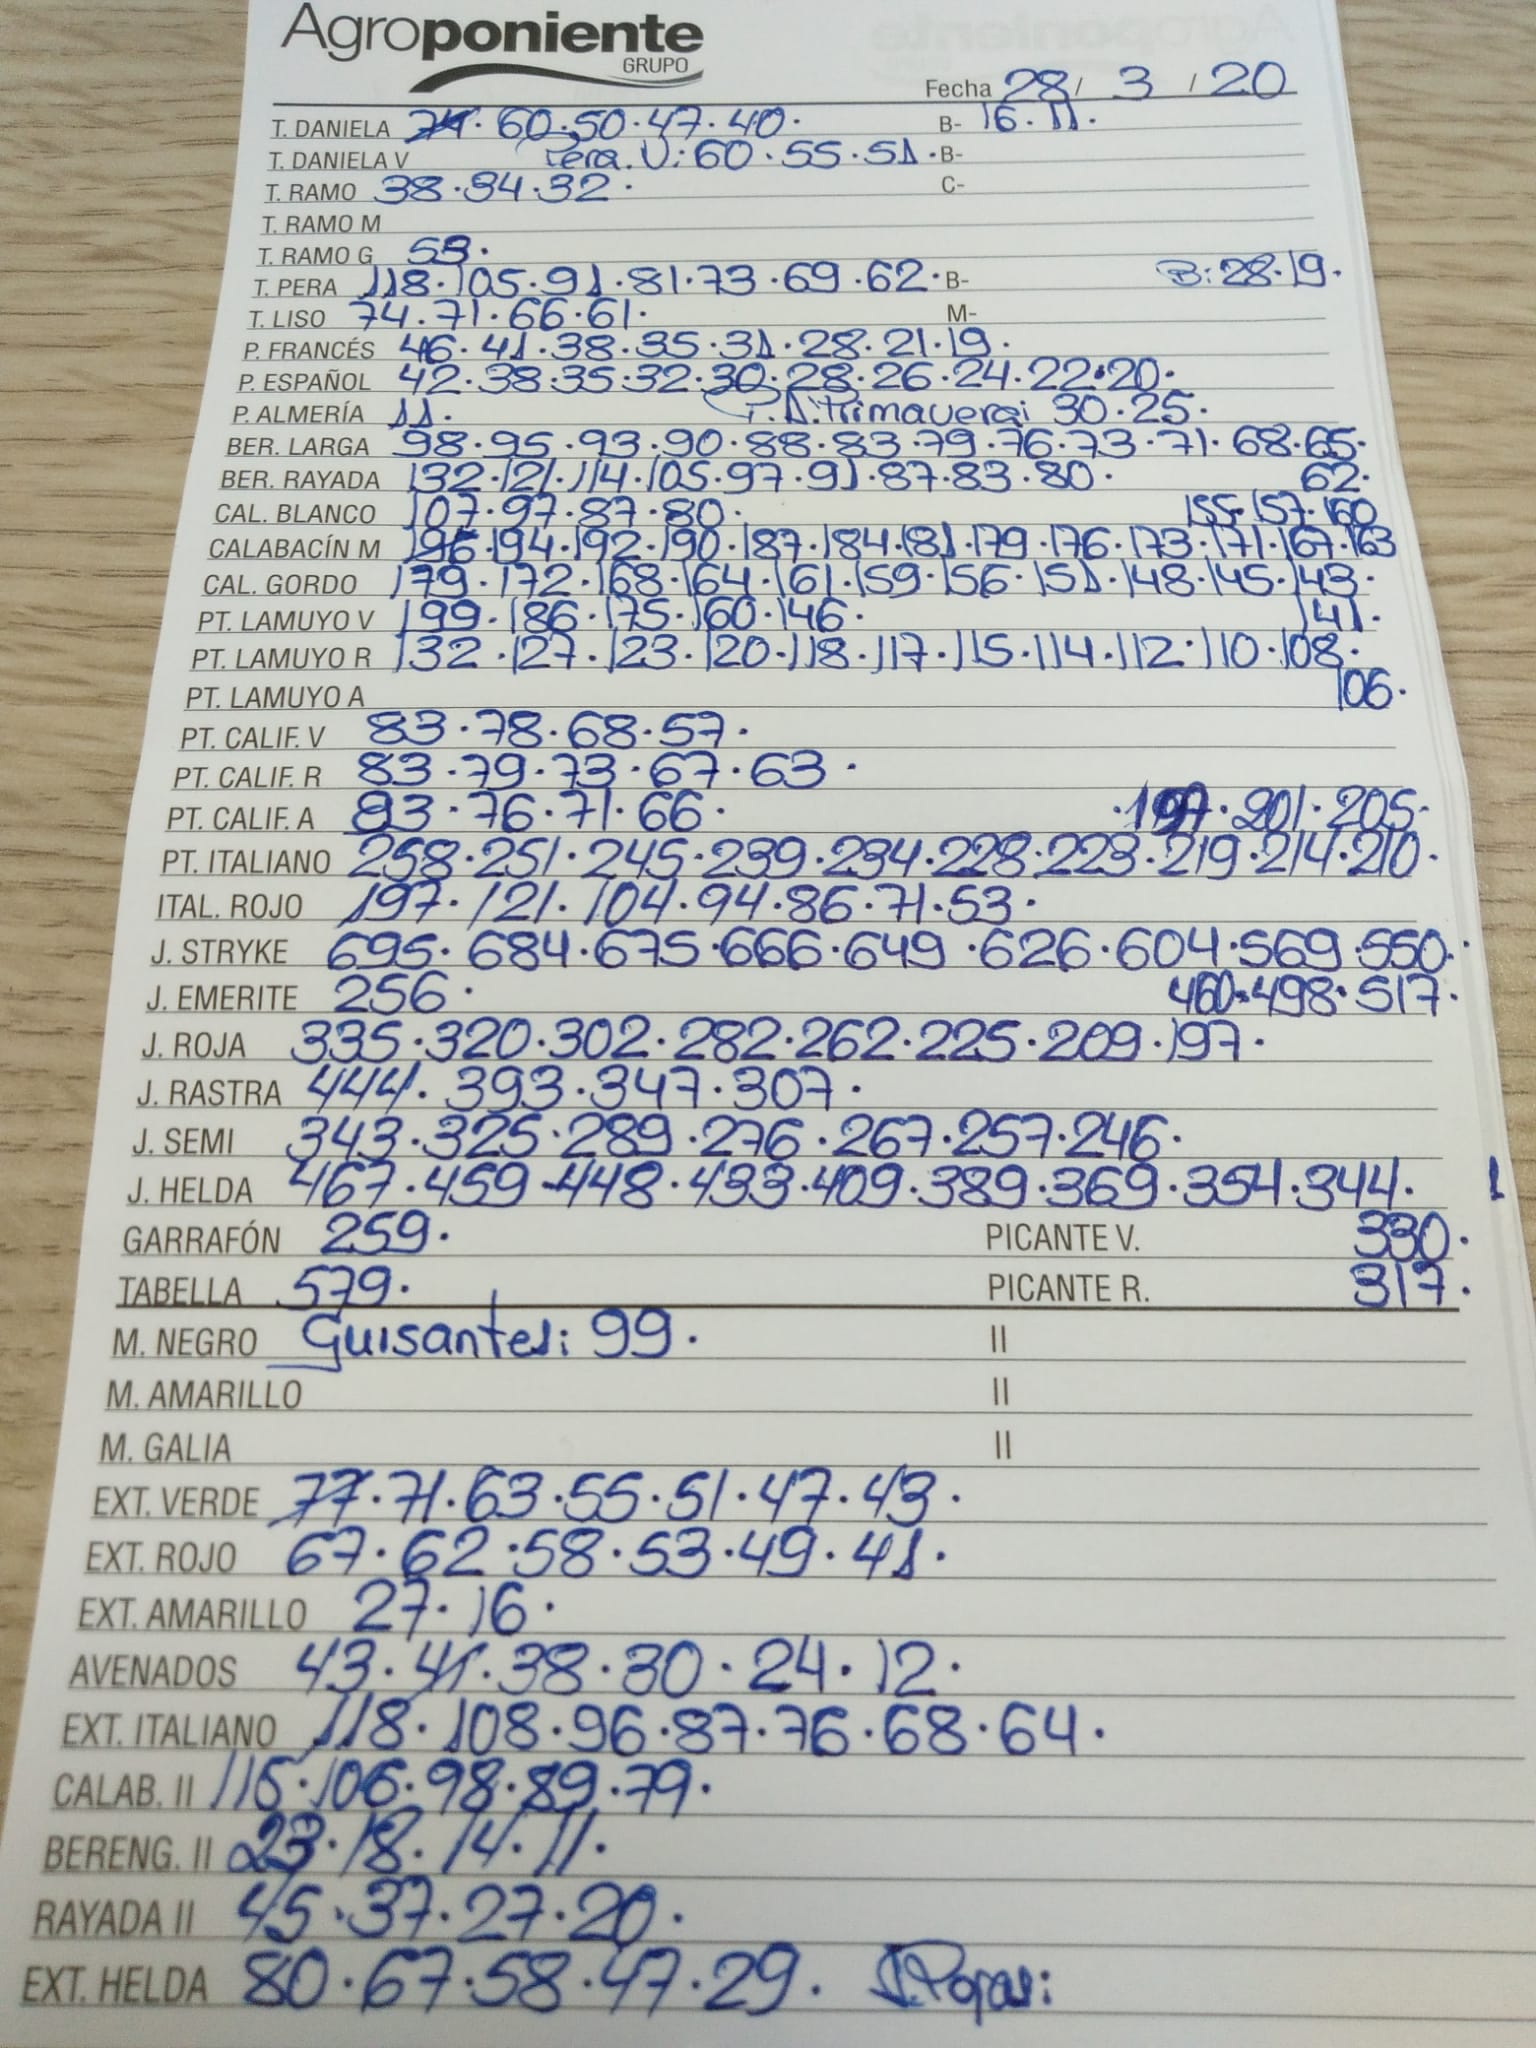 Agroponiente
GRUPO
Fecha 28/ 3 / 20
T. DANIELA 74. 60.50.47.40. B- 16.11.
T. DANIELA V Pera. V: 60.55.51. B-
T. RAMO 38.34.32. C-
T. RAMO M
T. RAMO G 53.
T. PERA 118.105.91.81.73.69.62. B- B: 28.19.
T. LISO 74.71.66.61. M-
P. FRANCÉS 46.41.38.35.31.28.21.19.
P. ESPAÑOL 42.38.35.32.30.28.26.24.22.20.
P. ALMERÍA 11. P.A. Primavera: 30.25.
BER. LARGA 98.95.93.90.88.83.79.76.73.71.68.65.
BER. RAYADA 132.121.114.105.97.91.87.83.80. 62.
CAL. BLANCO 107.97.87.80. 155.157.160
CALABACÍN M 196.194.192.190.187.184.181.179.176.173.171.167.163
CAL. GORDO 179.172.168.164.161.159.156.151.148.145.143.
PT. LAMUYO V 199.186.175.160.146. 141.
PT. LAMUYO R 132.127.123.120.118.117.115.114.112.110.108.
PT. LAMUYO A 106.
PT. CALIF. V 83.78.68.57.
PT. CALIF. R 83.79.73.67.63.
PT. CALIF. A 83.76.71.66. .197.201.205.
PT. ITALIANO 258.251.245.239.234.228.223.219.214.210.
ITAL. ROJO 197.121.104.94.86.71.53.
J. STRYKE 695.684.675.666.649.626.604.569.550.
J. EMERITE 256. 460.498.517.
J. ROJA 335.320.302.282.262.225.209.197.
J. RASTRA 444.393.347.307.
J. SEMI 343.325.289.276.267.257.246.
J. HELDA 467.459.448.433.409.389.369.354.344.
GARRAFÓN 259. PICANTE V. 330.
TABELLA 579. PICANTE R. 317.
M. NEGRO Guisantes: 99. II
M. AMARILLO II
M. GALIA II
EXT. VERDE 77.71.63.55.51.47.43.
EXT. ROJO 67.62.58.53.49.41.
EXT. AMARILLO 27.16.
AVENADOS 43.41.38.30.24.12.
EXT. ITALIANO 118.108.96.87.76.68.64.
CALAB. II 115.106.98.89.79.
BERENG. II 23.18.14.11.
RAYADA II 45.37.27.20.
EXT. HELDA 80.67.58.47.29.